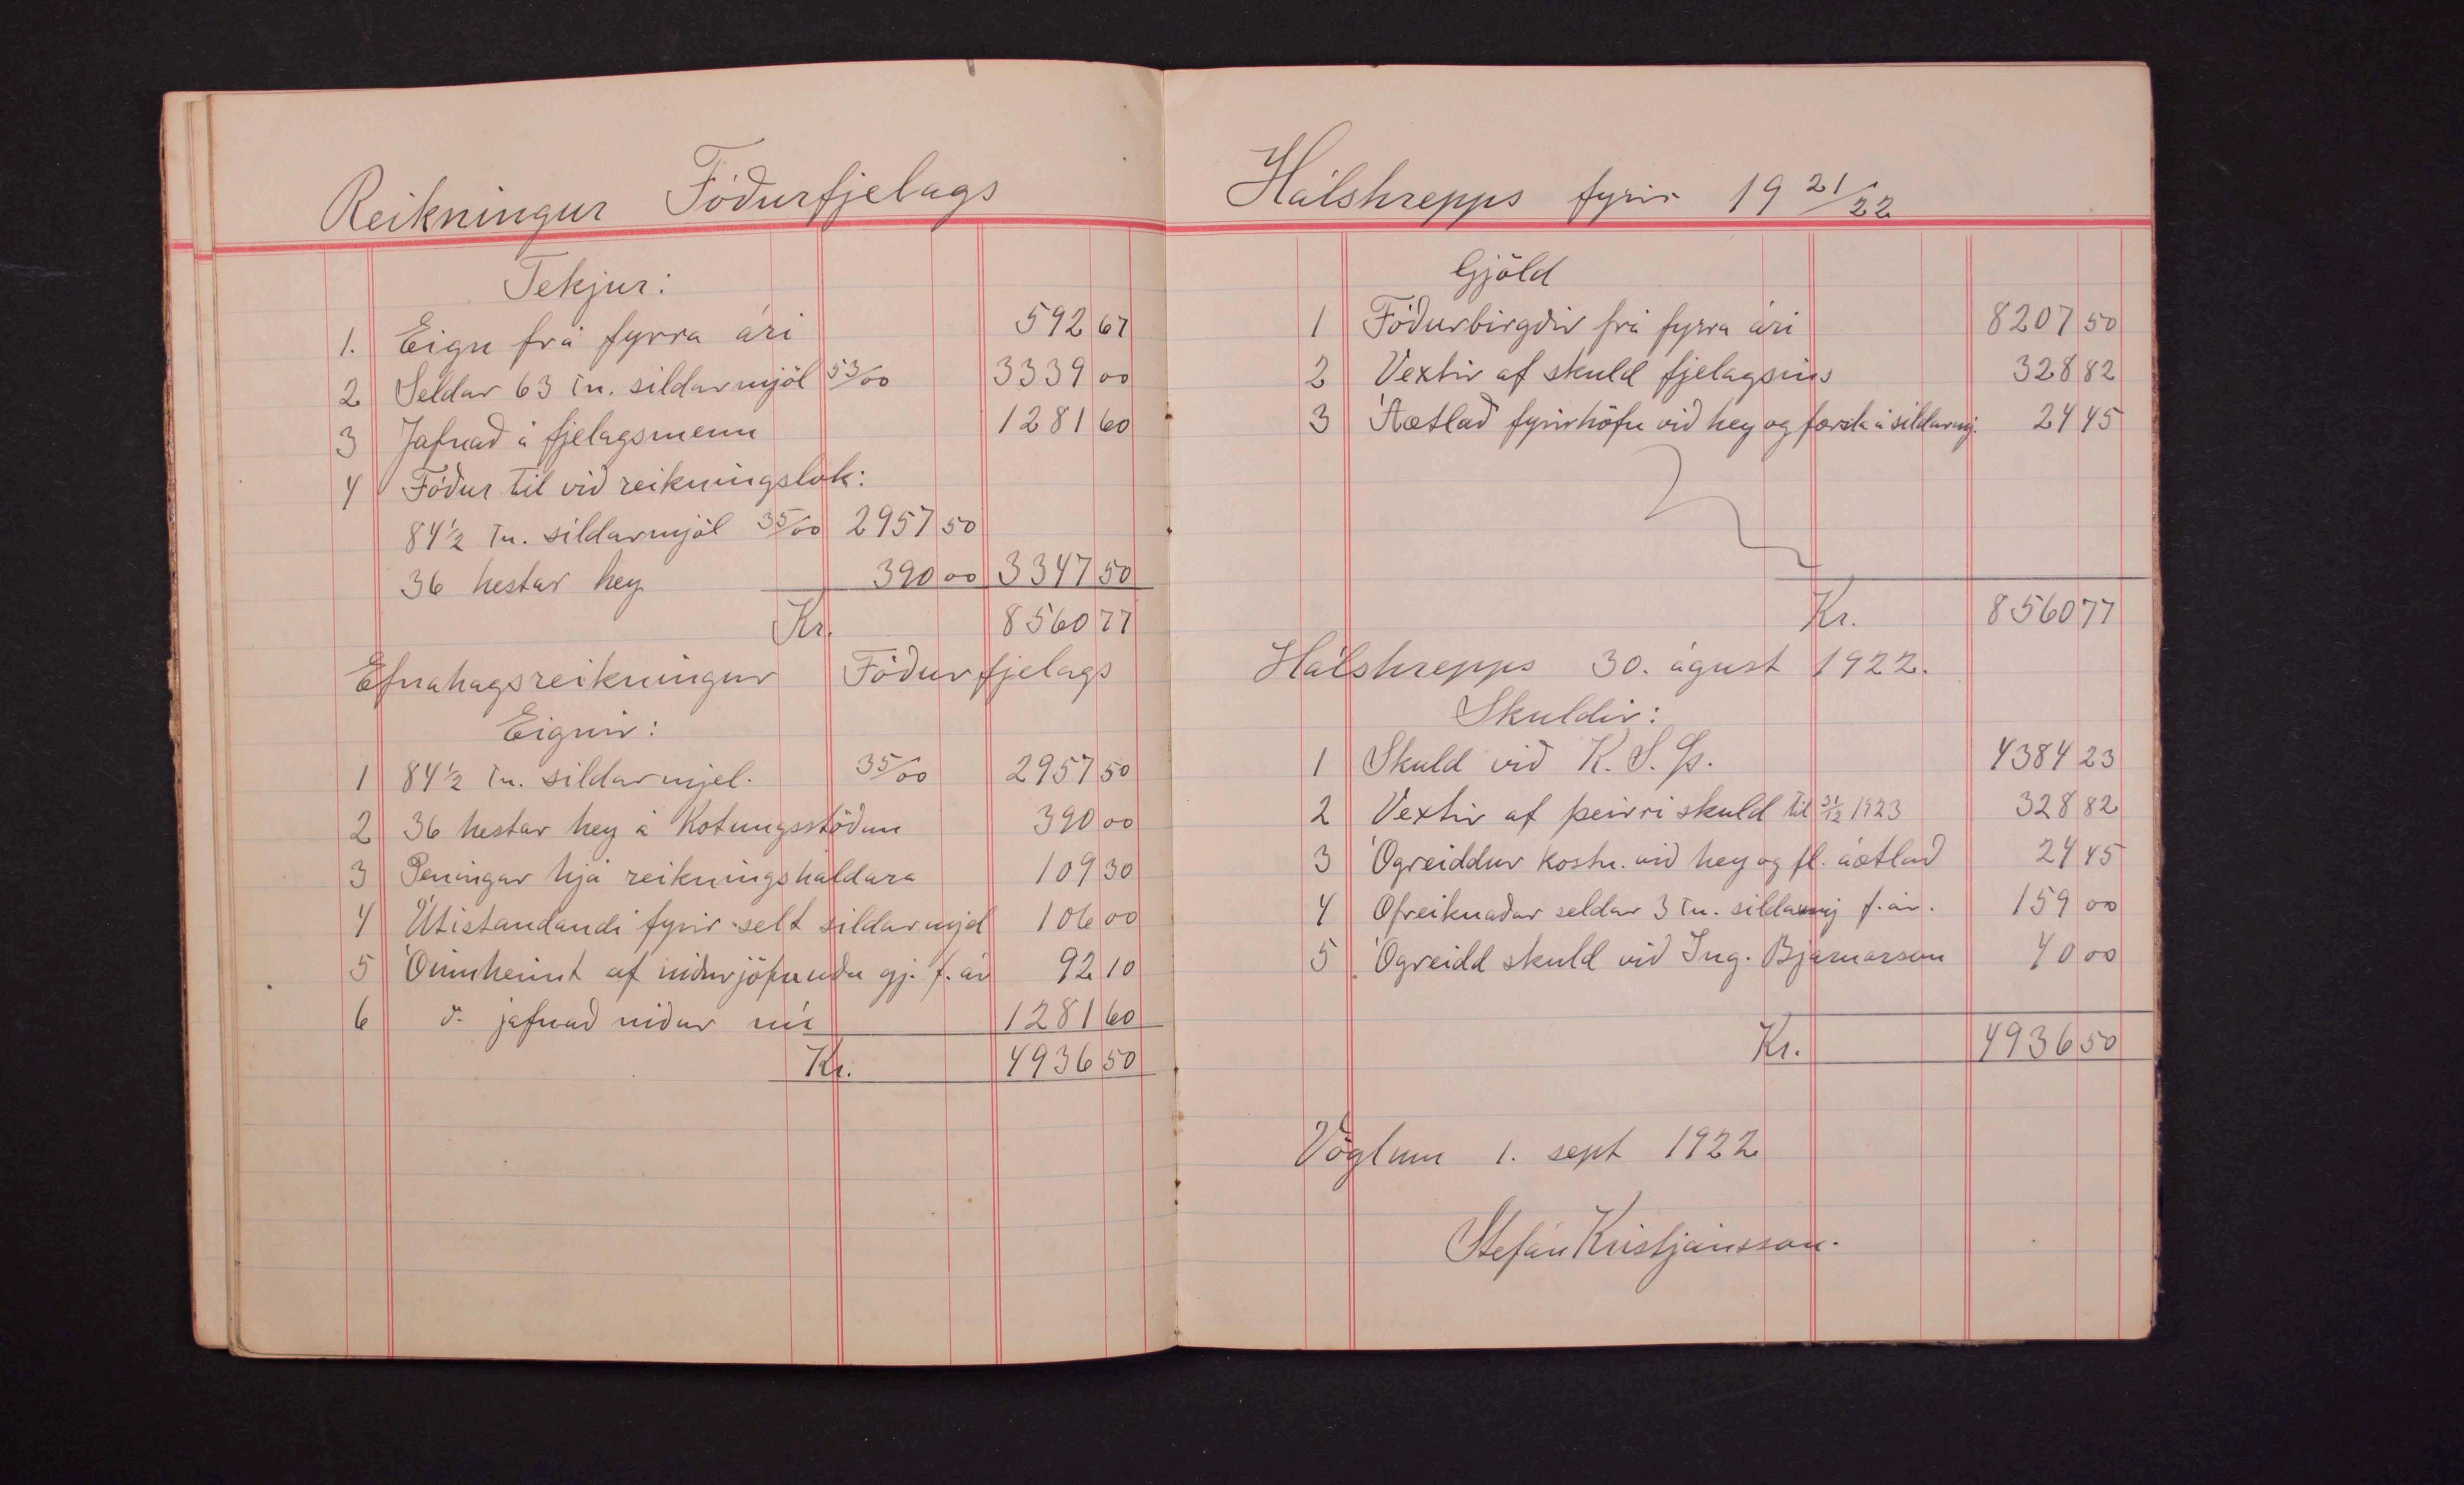 Reikningur Fóðurfjelags
Tekjur:
1. Eign frá fyrra ári 592 67
2 Seldar 63 tn. síldarmjöl 53/00 3339 00
3 Jafnað á fjelagsmenn 1281 60
4 Fóður til við reikningslok:
84 1/2 tn. síldarmjöl 35/00 2957 50
36 hestar hey 390 00 3347 50
Kr. 8560 77
Efnahagsreikningur Fóðurfjelags
Eignir:
1 84 1/2 tn. síldarmjel. 35/00 2957 50
2 36 hestar hey á Kotungsstöðum 390 00
3 Peningar hjá reikningshaldara 109 30
4 Útistandandi fyrir selt síldarmjöl 106 00
5 Óinnheimt af niðurjöfnuðu gj. f. ár 92 10
6 d. jafnað niður nú 1281 60
Kr. 4936 50
Hálshrepps fyrir 19 21/22
Gjöld
1 Fóðurbirgðir frá fyrra ári 8207 50
2 Vextir af skuld fjelagsins 328 82
3 Áætlað fyrirhöfn við hey og forsla á síldarmj. 24 45
Kr. 8560 77
Hálshrepps 30. ágúst 1922.
Skuldir:
1 Skuld við K. S. Þ. 4384 23
2 Vextir af þeirri skuld til 31/12 1923 328 82
3 Ógreiddur kostn. við hey og fl. áætlað 24 45
4 Ofreiknaðar seldar 3 tn. síldarmj f. ár. 159 00
5 Ógreidd skuld við Ing. Bjarnarson 40 00
Kr. 4936 50
Vöglum 1. sept 1922
Stefán Kristjánsson.